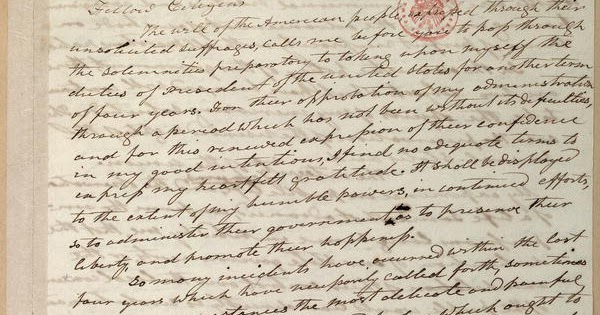 Fellow Citizens
The will of the American people, through their
unsolicited suffrages, calls me before you to pass through
the solemnities preparatory to taking upon myself the
duties of President of the united States for another term
of four years. For their approbation of my administration
through a period which has not been without its difficulties,
and for this renewed expression of their confidence
in my good intentions, I find no adequate terms to
express my heartfelt gratitude. It shall be displayed
to the extent of my humble powers, in continued efforts
so to administer their government, as to preserve their
liberty and promote their happiness.
So many incidents have occurred within the last
four years which have necessarily called forth, sometimes
the most delicate and painful
which ought to